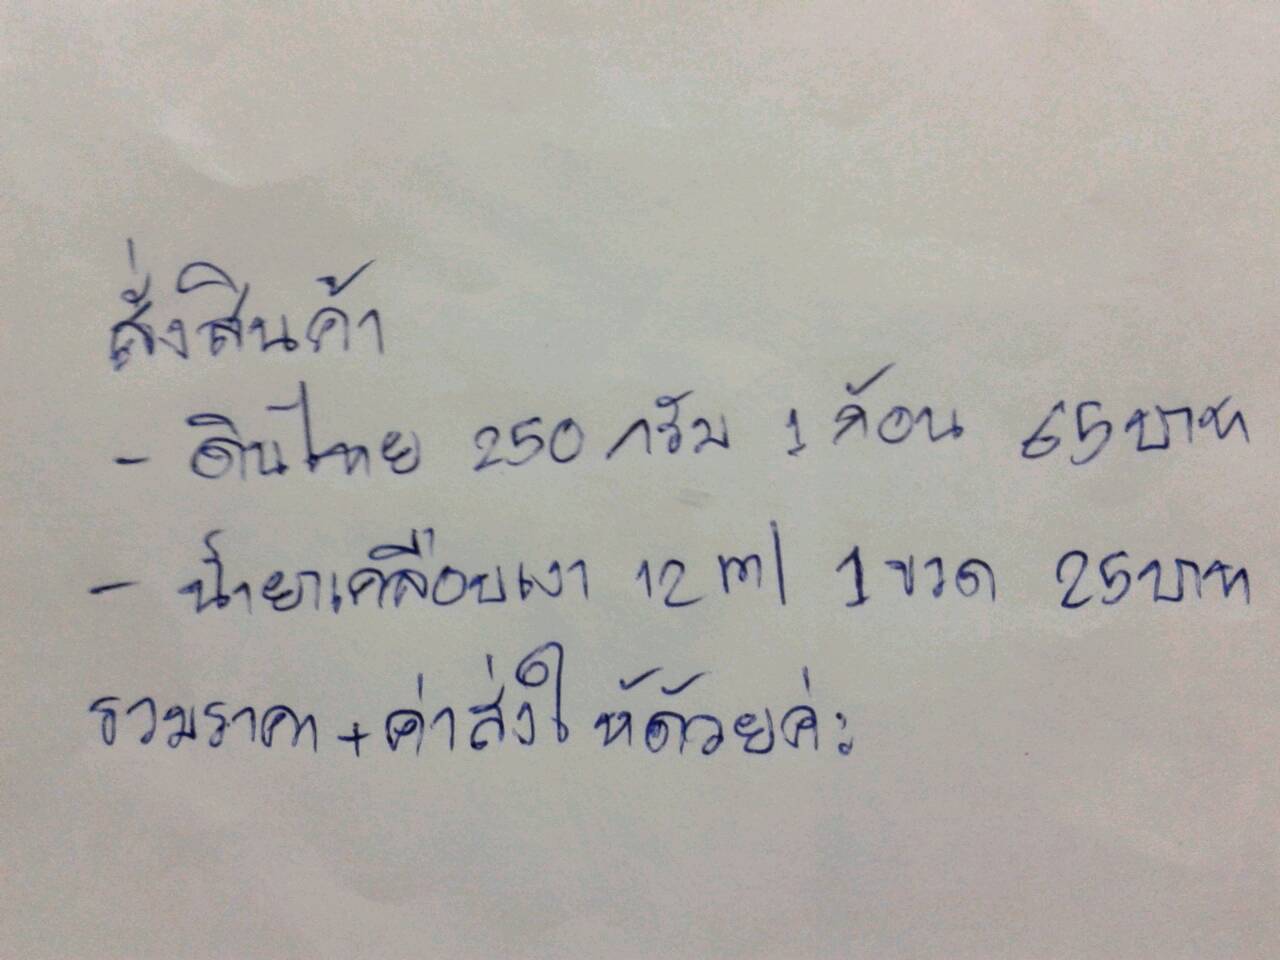 สั่งสินค้า
- ดินไทย 250 กรัม 1 ก้อน 65 บาท
- น้ำยาเคลือบเงา 12 ml 1 ขวด 25 บาท
รวมราคา + ค่าส่งให้ด้วยค่ะ